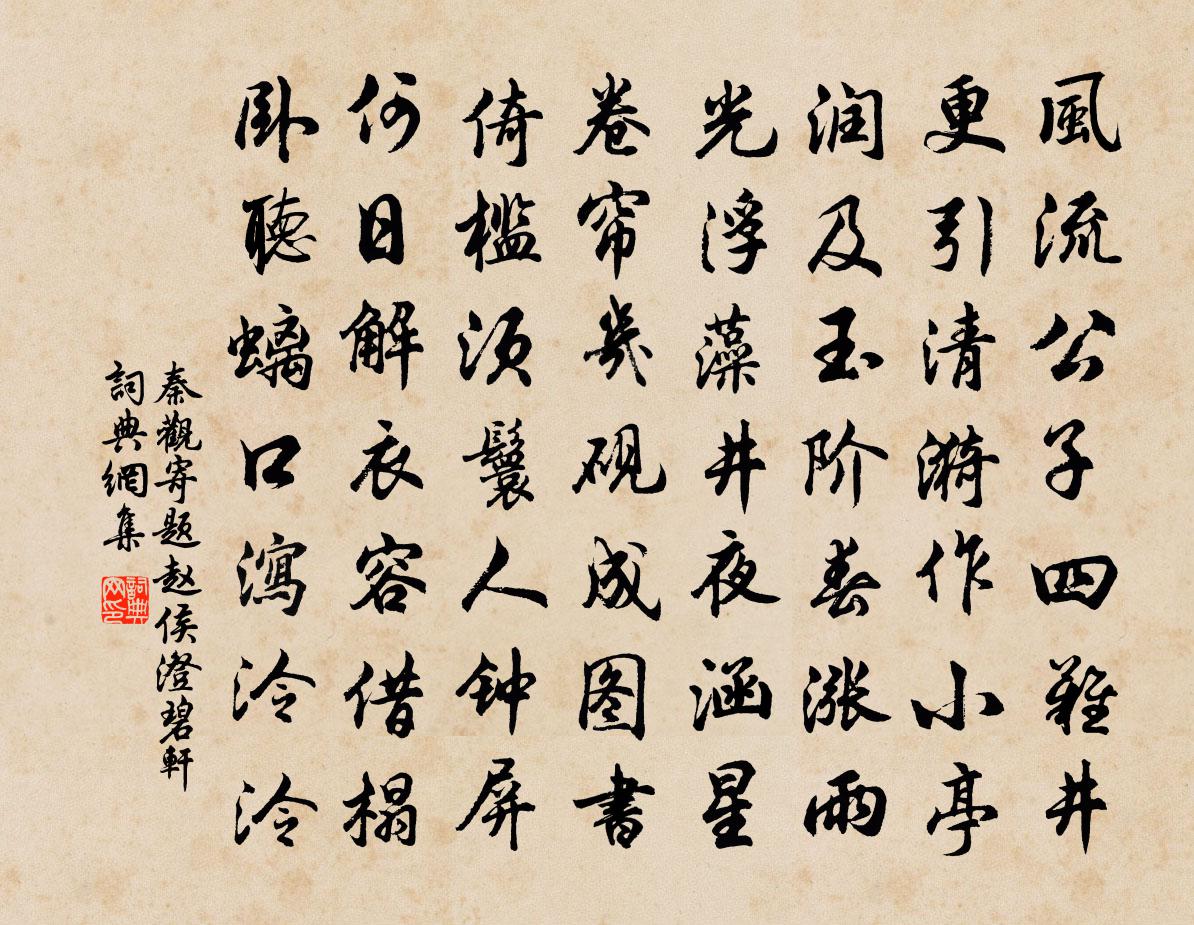 風流公子四難井
更引清漪作小亭
润及玉阶春涨雨
光浮藻井夜涵星
卷帘幾砚成图書
倚槛须鬟人钟屏
何日解衣容借榻
卧聽螭口瀉泠泠
秦觀寄题赵侯澄碧軒
詞典網集
詞典网印